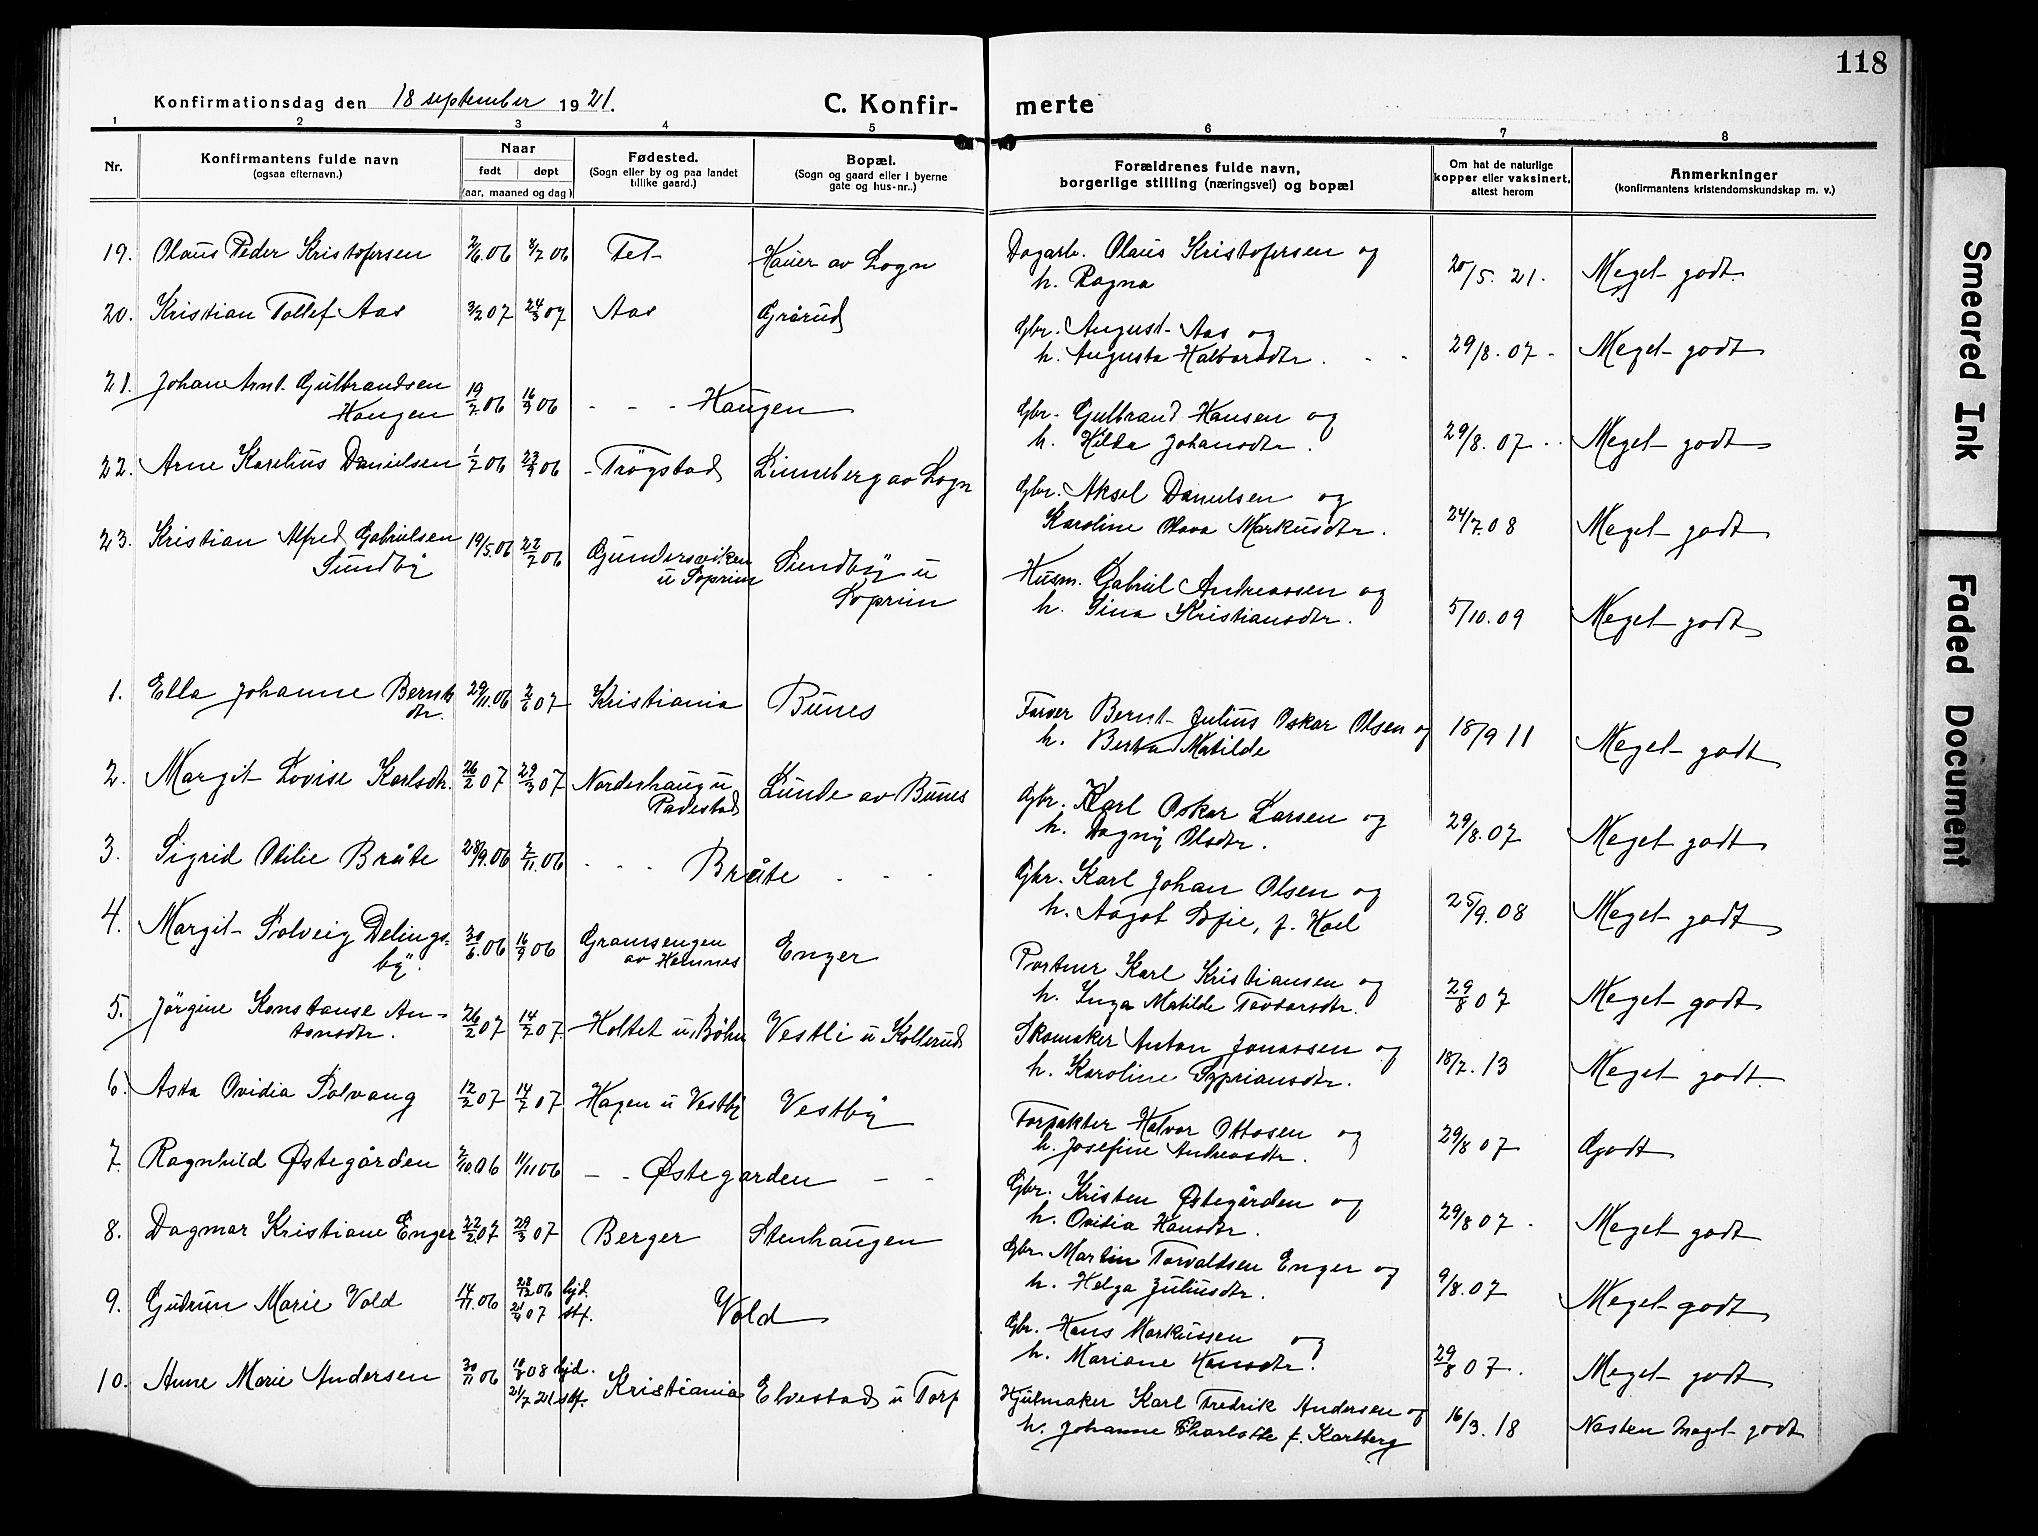 118
Konfirmationsdag den 18 september 1921.
C. Konfirmerte
1 2 3 4 5 6 7 8
Nr.
Konfirmantens fulde navn
(ogsaa efternavn.)
Naar
født døpt
(aar, maaned og dag)
Fødested.
(Sogn eller by og paa landet
tillike gaard.)
Bopæl.
(Sogn og gaard eller i byerne
gate og hus-nr..)
Forældrenes fulde navn,
borgerlige stilling (næringsvei) og bopæl
Om hat de naturlige
kopper eller vaksinert,
attest herom
Anmerkninger
(konfirmantens kristendomskundskap m. v.)
19. Olaus Peder Kristofersen 2/6.06 8/7 06 Fet Hauer av Sogn Dagarb. Olaus Kristofersen og
h. Ragna 20/5. 21. Meget godt.
20. Kristian Tollef Aas 3/2 07 24/3 07 Aas Grårud Gbr. August Aas og
h. Augusta Halvorsdtr. 29/8. 07 Meget godt
21. Johan Arnt Gulbrandsen
Haugen 19/7.06 16/9 06 - - - Haugen Gbr. Gulbrand Hansen og
h. Hilda Johansdtr. 29/8. 07 Meget godt
22. Arne Karelius Danielsen 1/7 06 23/9 06 - Trøgstad Linneberg av Sogn Gbr. Aksel Danielsen og
Karoline Olava Markusdtr. 24/7.08 Meget godt
23. Kristian Alfred Gabrielsen
Sundby 19/5.06 22/7 06 Gundersviken
u Soprim Sundby u
Soprim Husm. Gabriel Andreassen og
h. Lina Kristiansdtr. 5/10. 09 Meget godt
1. Ella Johanne Bernts
dtr. 29/11.06 2/6 07 Kristiania Bunes Farver Bernt Julius Oskar Olsen og
h. Berta Matilde 18/9 11 Meget godt
2. Margit Lovise Karlsdtr. 26/2 07 29/3 07 Norderhaug u
Padestad Lunde av Bunes Gbr. Karl Oskar Larsen og
h. Dagny Olsdtr. 29/8. 07 Meget godt
3. Sigrid Otilie Bråte 28/9.06 2/11.06 - - Bråte - - - Gbr. Karl Johan Olsen og
h. Aagot Sofie, f. Hoel 25/9. 08 Meget godt
4. Margit Solveig Delings-
by. 30/6.06 16/9 06 Gramsengen
av Hemnes Enger Portner Karl Kristiansen og
h. Inga Matilde Tovdarsdtr. 29/8 07 Meget godt
5. Jørgine Konstanse An-
tonsdtr. 26/2 07 14/7 07. Holtet u. Bøhn Vestli u Kollerud Skomaker Anton Jonassen og
h. Karoline Sypriansdtr. 18/7. 13 Meget godt
6. Asta Ovidia Solvang 12/2 07 14/7 07 Hagen u Vestby Vestby Forpakter Halvor Ottosen og
h. Josefine Andreasdtr. 29/8 07 Godt
7. Ragnhild Østegården 2/10.06 11/11 06 - - Østegarden - - Gbr. Kristen Østegården og
h. Ovidia Hansdtr. 29/8 07 Meget godt
8. Dagmar Kristiane Enger 22/2 07 29/3 07 Berger Stenhaugen Gbr Martin Torvaldsen Enger og
h. Helga Juliusdtr. 9/8. 07 Meget godt
9. Gudrun Marie Vold 14/11.06 28/12 06 hjd.
21/4 07 stf. Vold Gbr. Hans Markussen og
h. Mariane Hansdtr. 29/8 07. Meget godt
10. Anne Marie Andersen 30/11 06 10/8 08 hjd.
21/7 21 stf. Kristiania Elvestad u Torp Hjulmaker Karl Fredrik Andersen og
h. Johanne Charlotte f. Karlberg 16/3. 18 Næsten meget godt
Smeared Ink
Faded Document